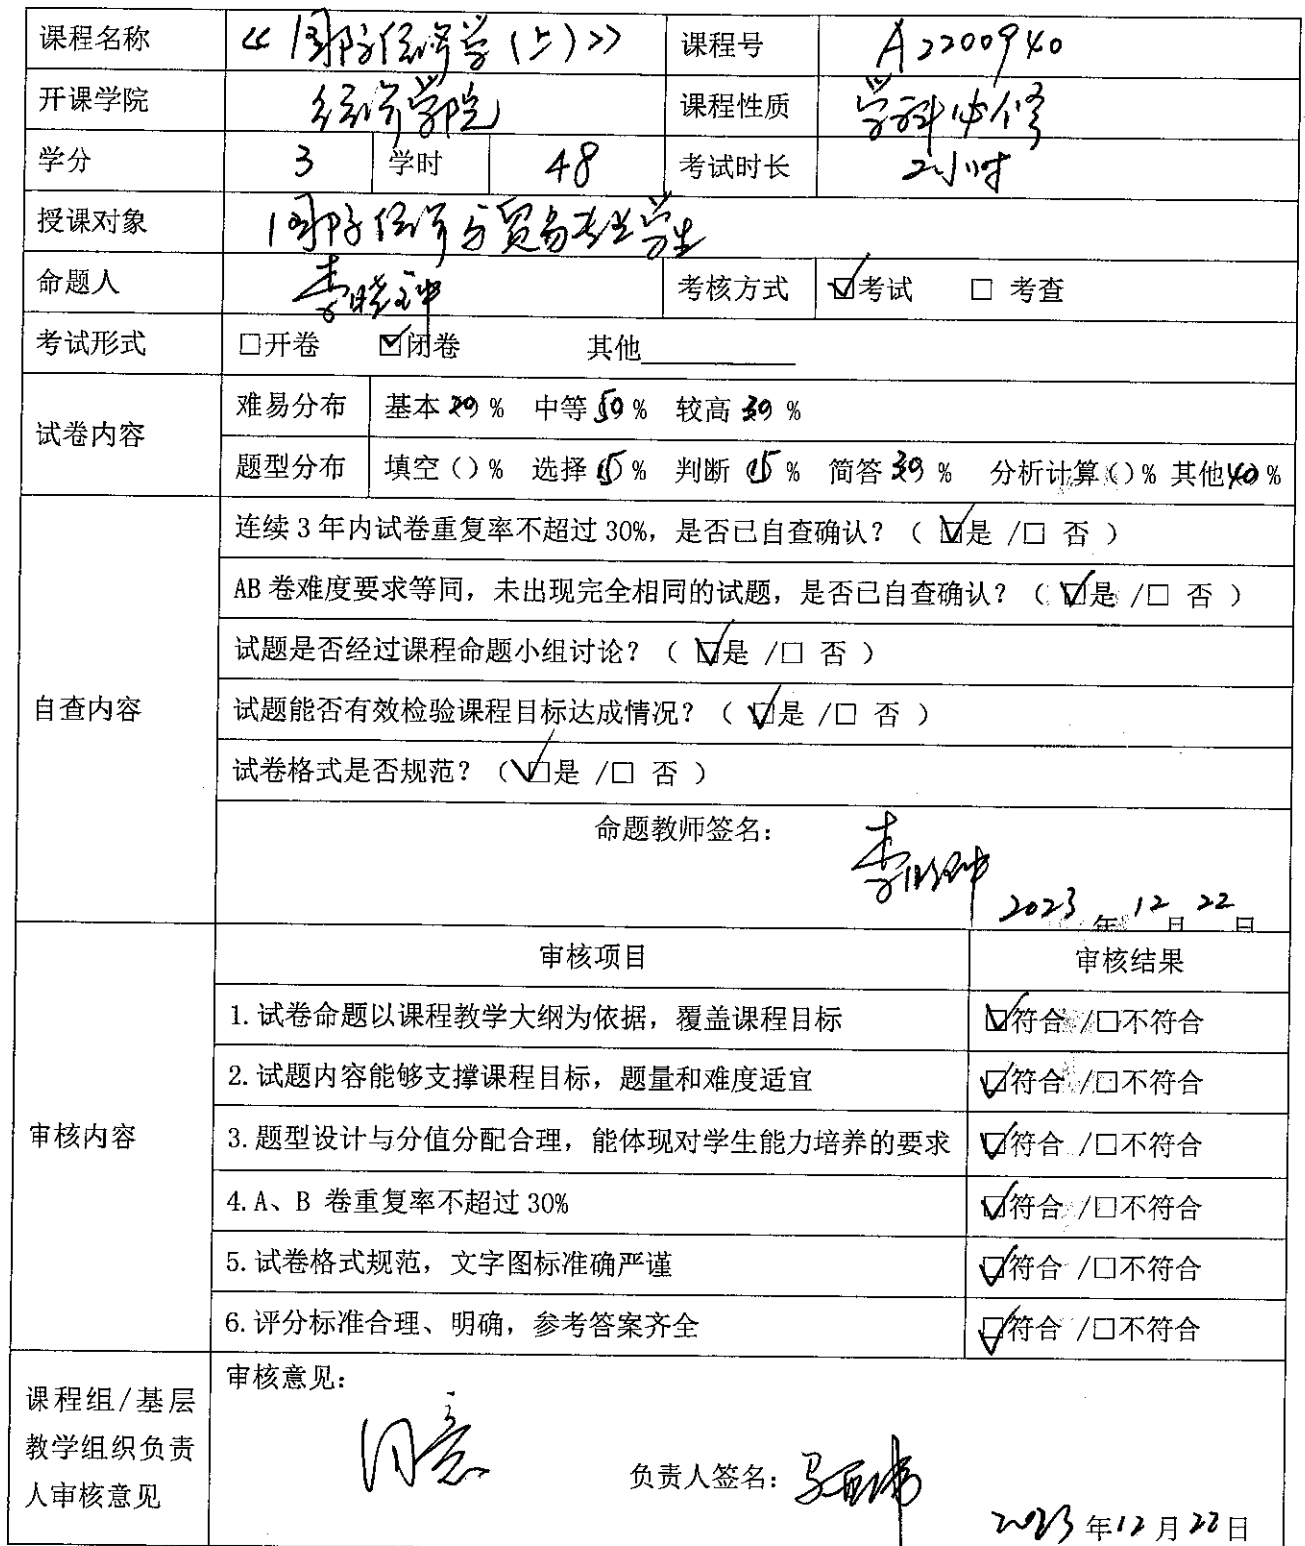 课程名称 《国际经济学(上)》 课程号 A2200940
开课学院 经济学院 课程性质 学科必修
学分 3 学时 48 考试时长 2小时
授课对象 国际经济与贸易专业学生
命题人 李晓钟 考核方式 ☑考试 □ 考查
考试形式 □开卷 ☑闭卷 其他
试卷内容
难易分布 基本 20 % 中等 50 % 较高 30 %
题型分布 填空()% 选择 15 % 判断 15 % 简答 30 % 分析计算()% 其他 40 %
自查内容
连续 3 年内试卷重复率不超过 30%，是否已自查确认？（ ☑是 /□ 否 ）
AB 卷难度要求等同，未出现完全相同的试题，是否已自查确认？（ ☑是 /□ 否 ）
试题是否经过课程命题小组讨论？（ ☑是 /□ 否 ）
试题能否有效检验课程目标达成情况？（ ☑是 /□ 否 ）
试卷格式是否规范？（ ☑是 /□ 否 ）
命题教师签名：李晓钟
2023 年 12 月 22 日
审核内容
审核项目 审核结果
1.试卷命题以课程教学大纲为依据，覆盖课程目标 ☑符合 /□不符合
2.试题内容能够支撑课程目标，题量和难度适宜 ☑符合 /□不符合
3.题型设计与分值分配合理，能体现对学生能力培养的要求 ☑符合 /□不符合
4.A、B 卷重复率不超过 30% ☑符合 /□不符合
5.试卷格式规范，文字图标准确严谨 ☑符合 /□不符合
6.评分标准合理、明确，参考答案齐全 ☑符合 /□不符合
课程组/基层
教学组织负责
人审核意见
审核意见：
同意
负责人签名：
2023 年 12 月 22 日